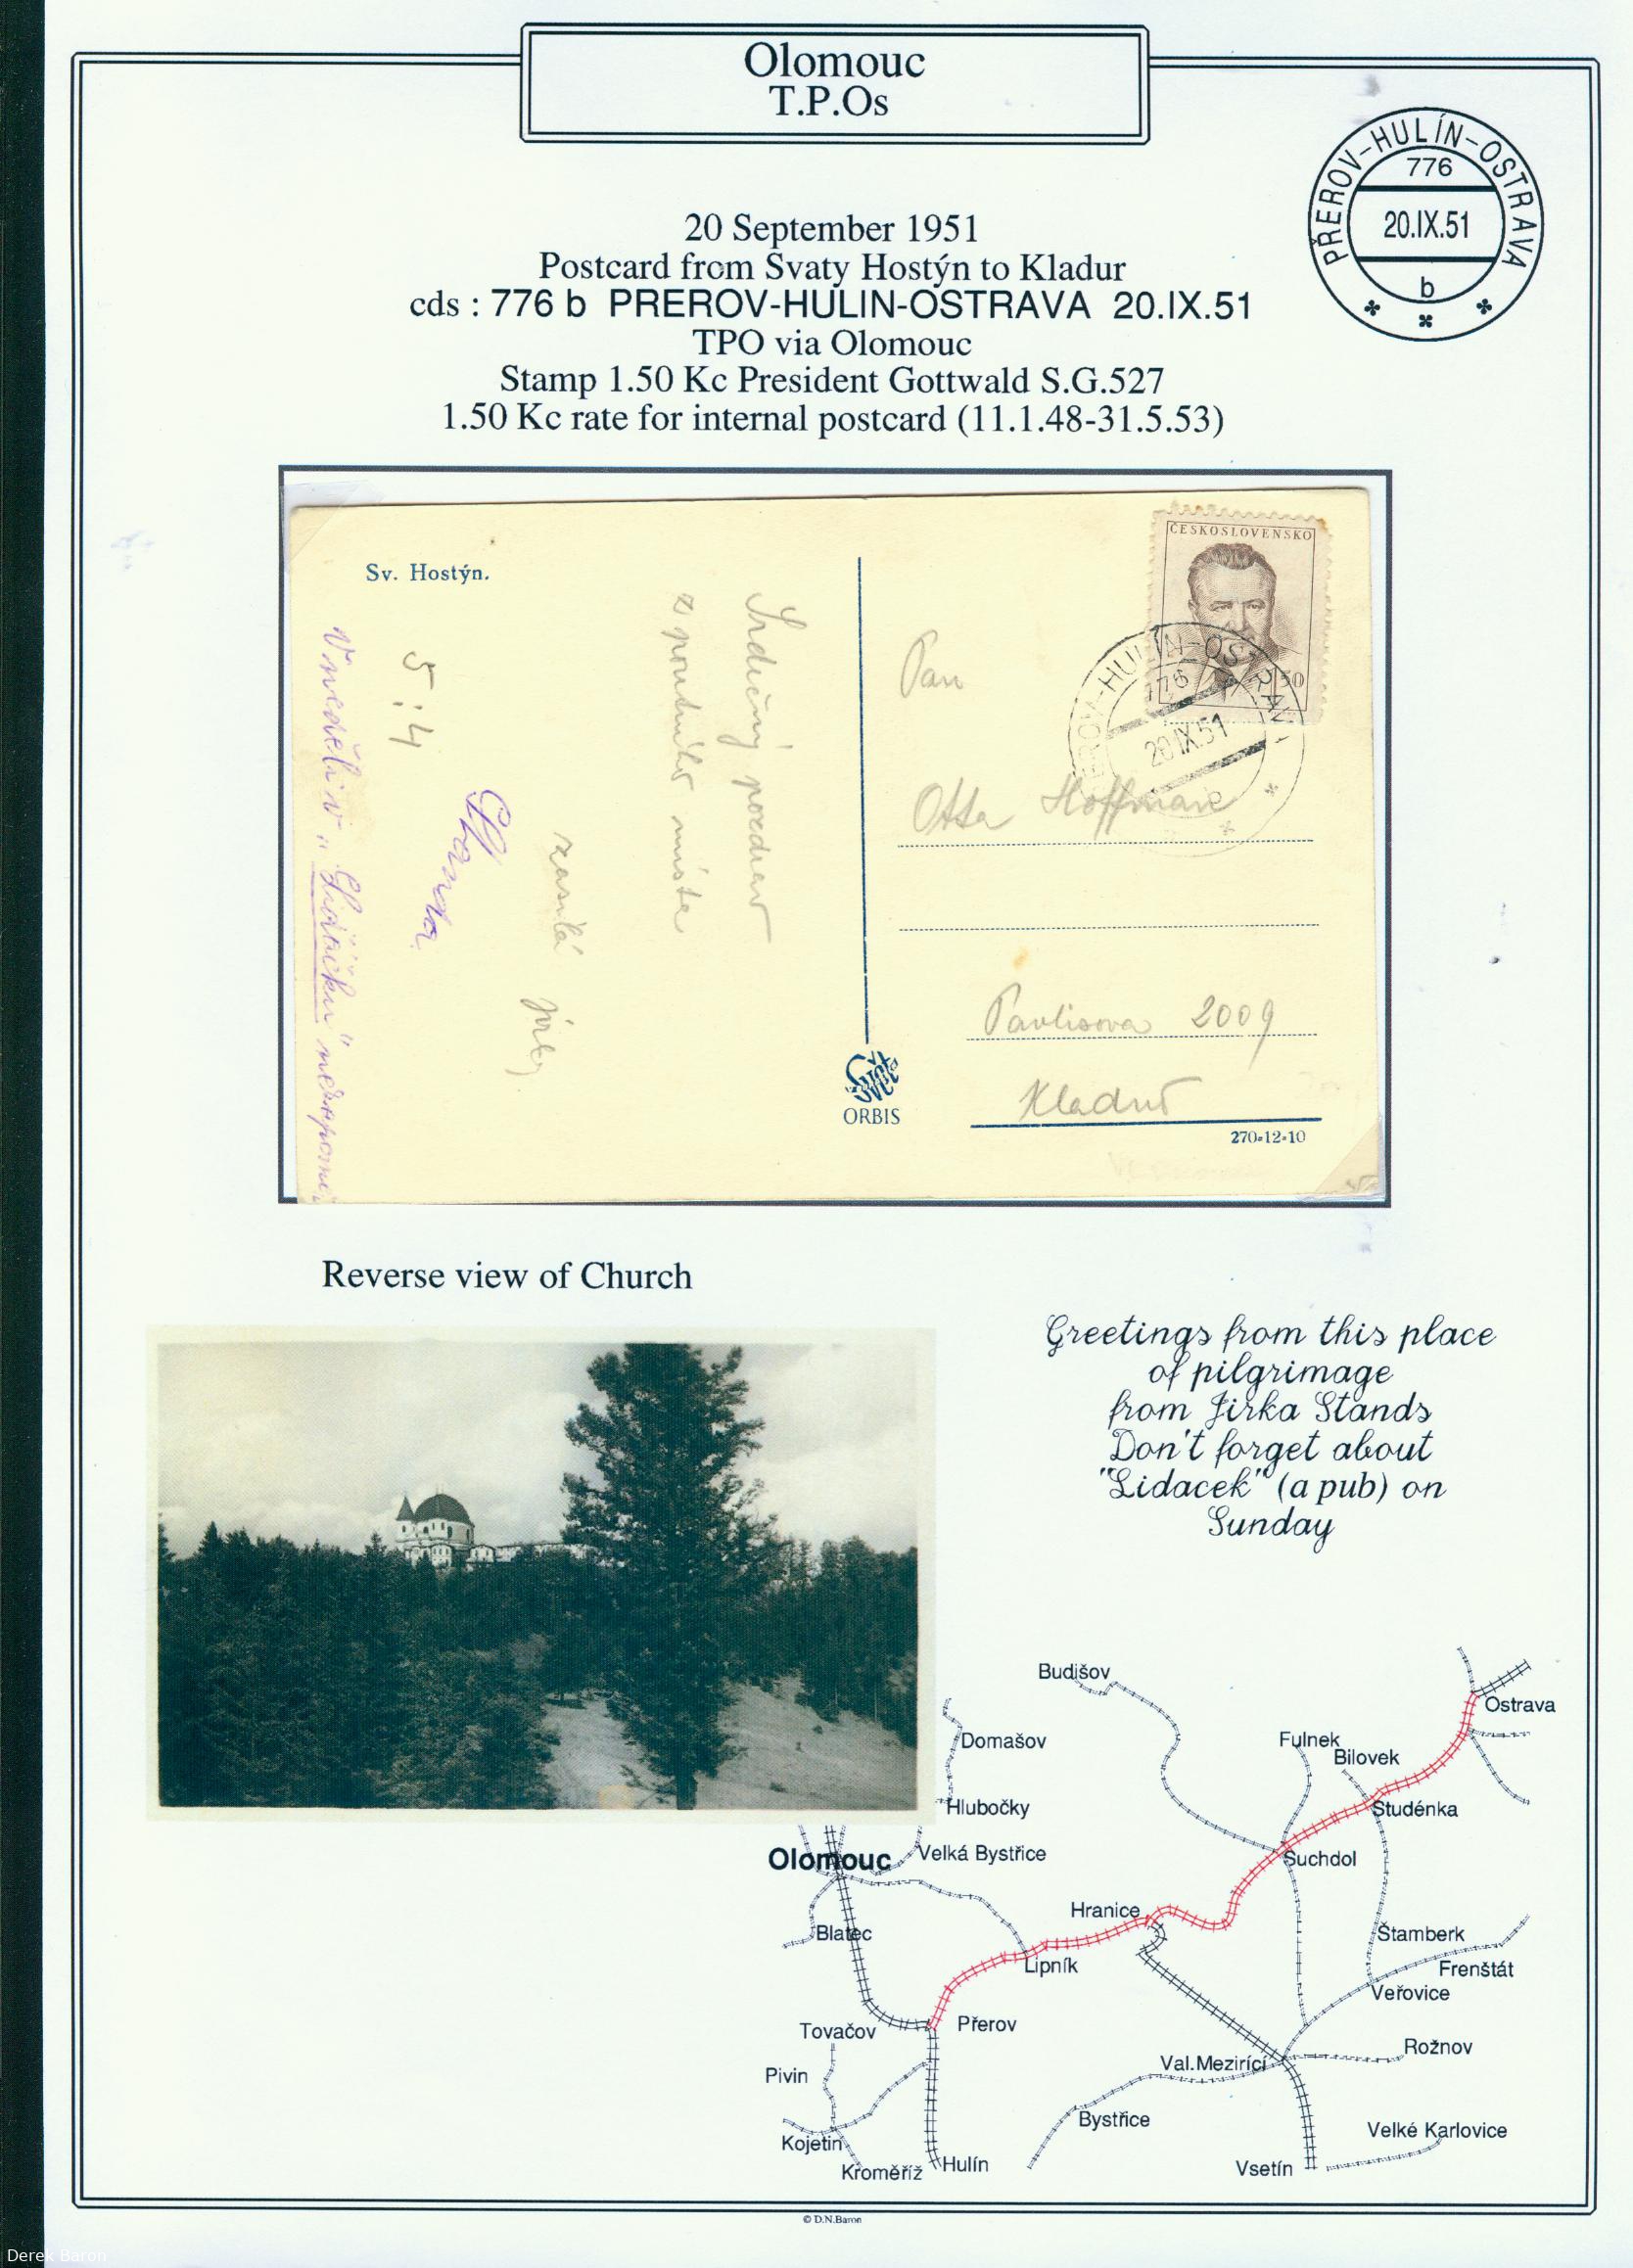 Olomouc
T.P.Os
PŘEROV-HULÍN-OSTRAVA
776
20.IX.51
b
20 September 1951
Postcard from Svaty Hostýn to Kladur
cds : 776 b PREROV-HULIN-OSTRAVA 20.IX.51
TPO via Olomouc
Stamp 1.50 Kc President Gottwald S.G.527
1.50 Kc rate for internal postcard (11.1.48-31.5.53)
Sv. Hostýn.
Srdečný pozdrav
z poutního místa
zasílá
Jirka
Standa
5:4
V neděli v „Lidáčku"
ČESKOSLOVENSKO
50
EROV-HULÍN-OSTRAVA
776
20.IX.51
Pan
Otta Hoffmann
Pavlisova 2009
Kladno
Svět
ORBIS
270-12-10
Reverse view of Church
Greetings from this place
of pilgrimage
from Jirka Stands
Don't forget about
"Lidacek" (a pub) on
Sunday
Budišov
Ostrava
Domašov
Fulnek
Bilovek
Hlubočky
Studénka
Olomouc
Velká Bystřice
Suchdol
Hranice
Blatec
Štamberk
Lipník
Frenštát
Veřovice
Tovačov
Přerov
Rožnov
Pivin
Val.Mezirící
Bystřice
Velké Karlovice
Kojetin
Kroměříž
Hulín
Vsetín
© D.N.Baron
Derek Baron